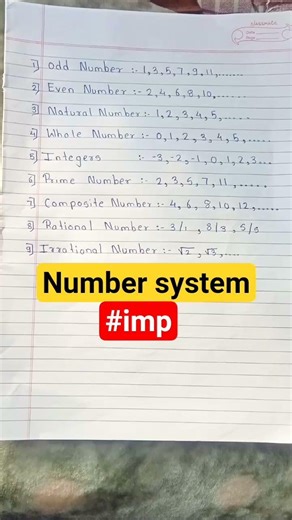 classmate
Date
Page
1) Odd Number :- 1, 3, 5, 7, 9, 11, ......
2) Even Number :- 2, 4, 6, 8, 10, ......
3) Natural Number :- 1, 2, 3, 4, 5, .....
4) Whole Number :- 0, 1, 2, 3, 4, 5, .....
5) Integers :- -3, -2, -1, 0, 1, 2, 3 ...
6) Prime Number :- 2, 3, 5, 7, 11, .....
7) Composite Number :- 4, 6, 8, 10, 12, .....
8) Rational Number :- 3/1, 8/3, 5/3
9) Irrational Number :- √2, √3, ....
Number system
#imp